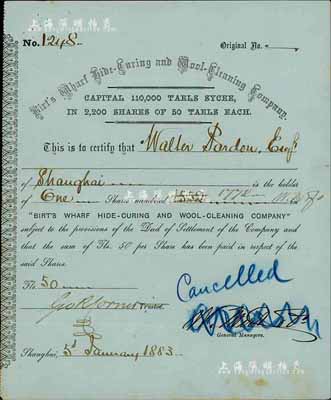 上海阳明拍卖
No. 1248
Original No.
Birt's Wharf Hide-Curing and Wool-Cleaning Company.
CAPITAL 110,000 TAELS SYCEE,
IN 2,200 SHARES OF 50 TAELS EACH.
This is to certify that Walter Pardon, Esqr
of Shanghai is the holder
of One Shares numbered 1772
"BIRT'S WHARF HIDE-CURING AND WOOL-CLEANING COMPANY"
subject to the provisions of the Deed of Settlement of the Company and
that the sum of Tls. 50 per Share has been paid in respect of the
said Shares.
Tls. 50
Cancelled
General Managers.
Shanghai, 5th January 1883.